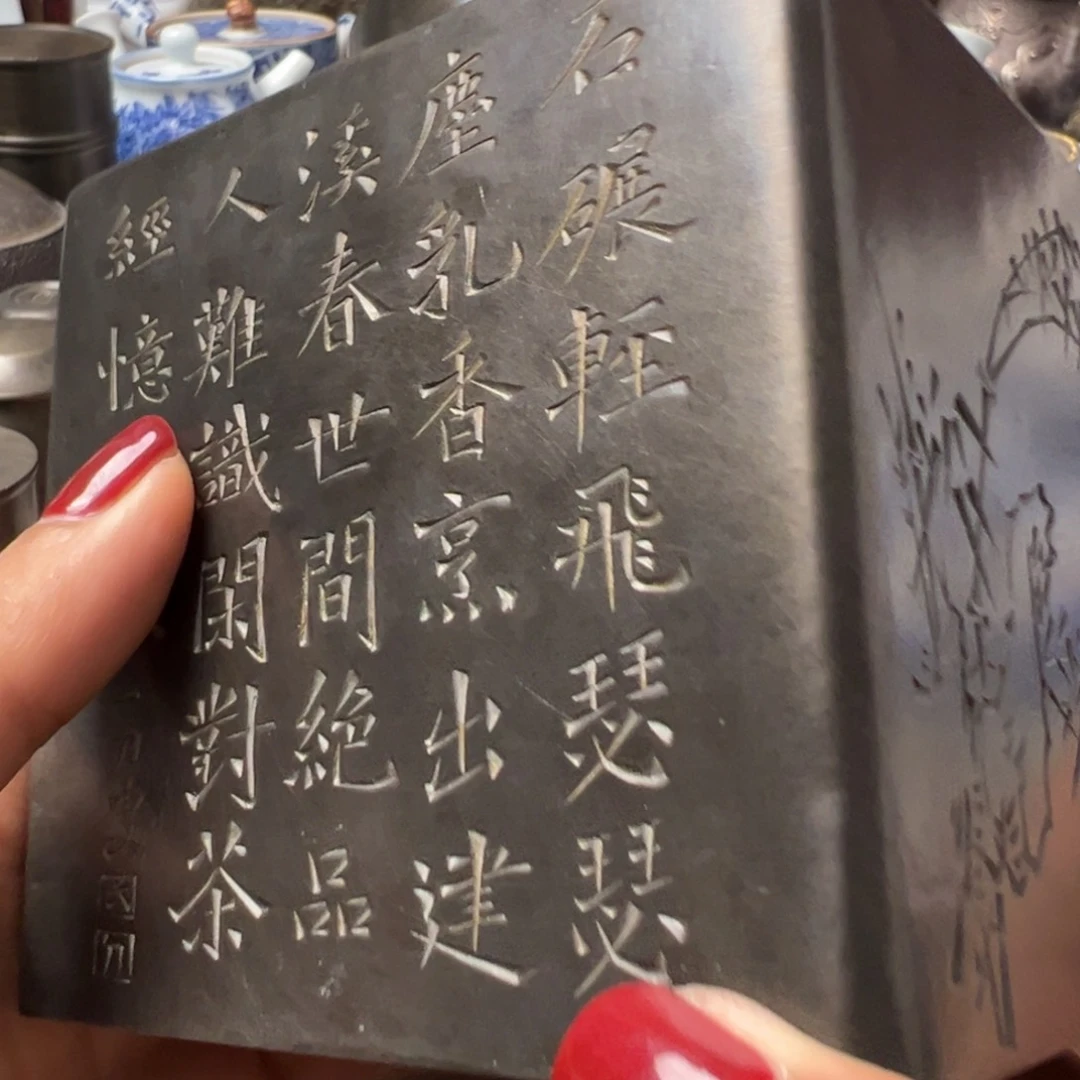 石碾輕飛瑟瑟
塵乳香烹出建
溪春世間絕品
人難識閑對茶
經憶